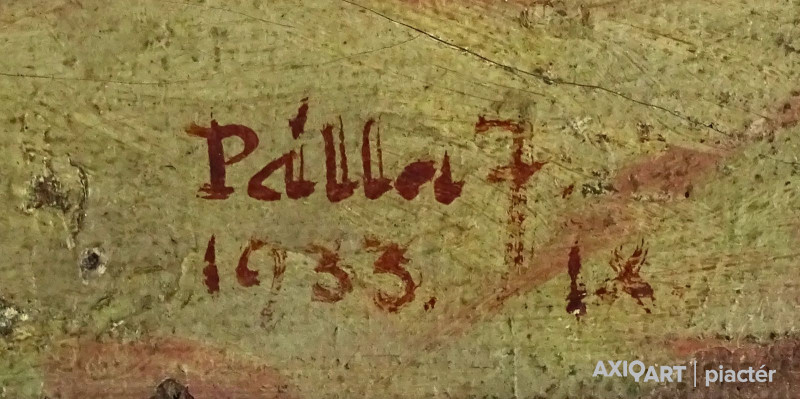 Pálla J.
1933. IX
AXIOART | piactér